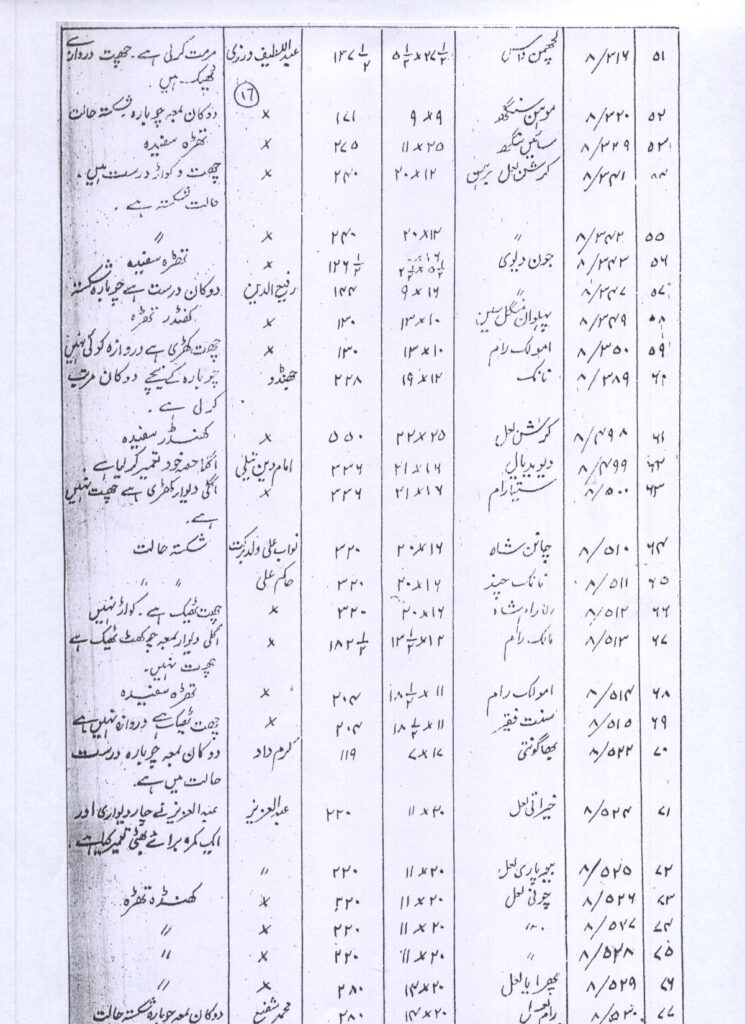 ۵۱ ۸/۳۱۶ لچھمن داس ۲۷½×۵½ ۱۴۷½ عبداللطیف درزی مرمت کرلی ہے۔ چھت دروازے
ٹھیک ہیں
(۱۶)
۵۲ ۸/۳۲۰ موہن سنگھ ۹×۹ ۱۷۱ × دوکان بمعہ چوبارہ شکستہ حالت
۵۳ ۸/۳۲۹ سائیں سنگھ ۱۱×۲۵ ۲۷۵ × تھڑہ سفیدہ
۸/۳۴۱ کرشن لعل ۲۰×۱۲ ۲۴۰ × چھت و کواڑ درست ہیں۔
حالت شکستہ ہے۔
۵۵ ۸/۳۴۲ // ۲۰×۱۲ ۲۴۰ × //
۵۶ ۸/۳۴۳ دیوی ۱۲۶½ × تھڑہ سفیدہ
۵۷ ۸/۳۴۷ // ۹×۱۶ ۱۴۴ رفیع الدین دوکان درست ہے چوبارہ شکستہ
۵۸ ۸/۳۴۹ پہلوان ۱۳×۱۰ ۱۳۰ × کھنڈر تھڑہ
۵۹ ۸/۳۵۰ امولک رام ۱۳×۱۰ ۱۳۰ × چھت کھڑی ہے دروازہ کوئی نہیں
۶۰ ۸/۳۸۹ نانک ۱۹×۱۲ ۲۲۸ جھنڈو چوبارہ کے نیچے دوکان مرمت
کرلی ہے۔
۶۱ ۸/۴۹۸ کرشن لعل ۲۲×۲۵ ۵۵۰ × کھنڈر سفیدہ
۶۲ ۸/۴۹۹ دیوی دیال ۲۱×۱۶ ۳۳۶ امام دین تیلی اگلا حصہ خود تعمیر کرلیا ہے
۶۳ ۸/۵۰۰ ستیارام ۲۱×۱۶ ۳۳۶ × اگلی دیوار کھڑی ہے چھت نہیں
ہے۔
۶۴ ۸/۵۱۰ چانن شاہ ۲۰×۱۶ ۳۲۰ نواب علی ولد برکت شکستہ حالت
۶۵ ۸/۵۱۱ نانک چند ۲۰×۱۶ ۳۲۰ حاکم علی // //
۶۶ ۸/۵۱۲ شاہ ۲۰×۱۶ ۳۲۰ × چھت ٹھیک ہے۔ کواڑ نہیں
۶۷ ۸/۵۱۳ مانک رام ۱۸۲½ × اگلی دیوار بمعہ چوکھٹ ٹھیک ہے
چھت نہیں۔
۶۸ ۸/۵۱۴ امولک رام ۱۸½×۱۱ ۲۰۴ × تھڑہ سفیدہ
۶۹ ۸/۵۱۵ سنت فقیر ۱۸½×۱۱ ۲۰۴ × چھت ٹھیک ہے دروازہ نہیں ہے
۷۰ ۸/۵۲۲ بھاگونتی ۷×۱۷ ۱۱۹ کرم داد دوکان بمعہ چوبارہ درست
حالت میں ہے۔
۷۱ ۸/۵۲۴ خیراتی لعل ۱۱×۲۰ ۲۲۰ عبدالعزیز عبدالعزیز نے چار دیواری اور
ایک کمرہ برائے بھٹی تعمیر کیا ہے۔
۷۲ ۸/۵۲۵ لعل ۱۱×۲۰ ۲۲۰ //
۷۳ ۸/۵۲۶ چونی لعل ۱۱×۲۰ ۲۲۰ × کھنڈہ تھڑہ
۷۴ ۸/۵۲۷ // ۱۱×۲۰ ۲۲۰ × //
۷۵ ۸/۵۲۸ // ۱۱×۲۰ ۲۲۰ × //
۷۶ ۸/۵۲۹ لعل ۱۴×۲۰ ۲۸۰ × //
۷۷ ۸/۵۳۰ ۱۴×۲۰ ۲۸۰ محمد شفیع دوکان بمعہ چوبارہ شکستہ حالت